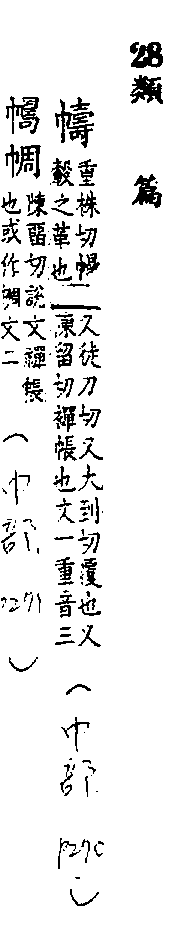 28類篇
幬 重株切幔
轂之革也 又徒刀切又大到切覆也又
陳留切襌帳也文一重音三 (巾部 P270)
幬 陳留切說文襌帳
也或作 文二 (巾部 P271)